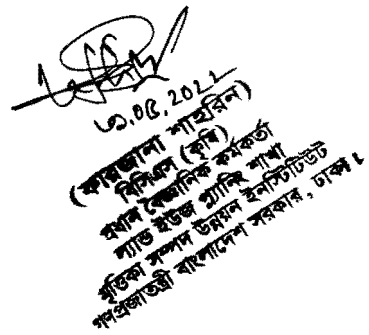 ৩১.০৫.২০২২
(ফারজানা শাহরিন)
বিসিএস (কৃষি)
প্রধান বৈজ্ঞানিক কর্মকর্তা
ল্যান্ড ইউজ প্ল্যানিং শাখা
মৃত্তিকা সম্পদ উন্নয়ন ইনস্টিটিউট
গণপ্রজাতন্ত্রী বাংলাদেশ সরকার, ঢাকা।